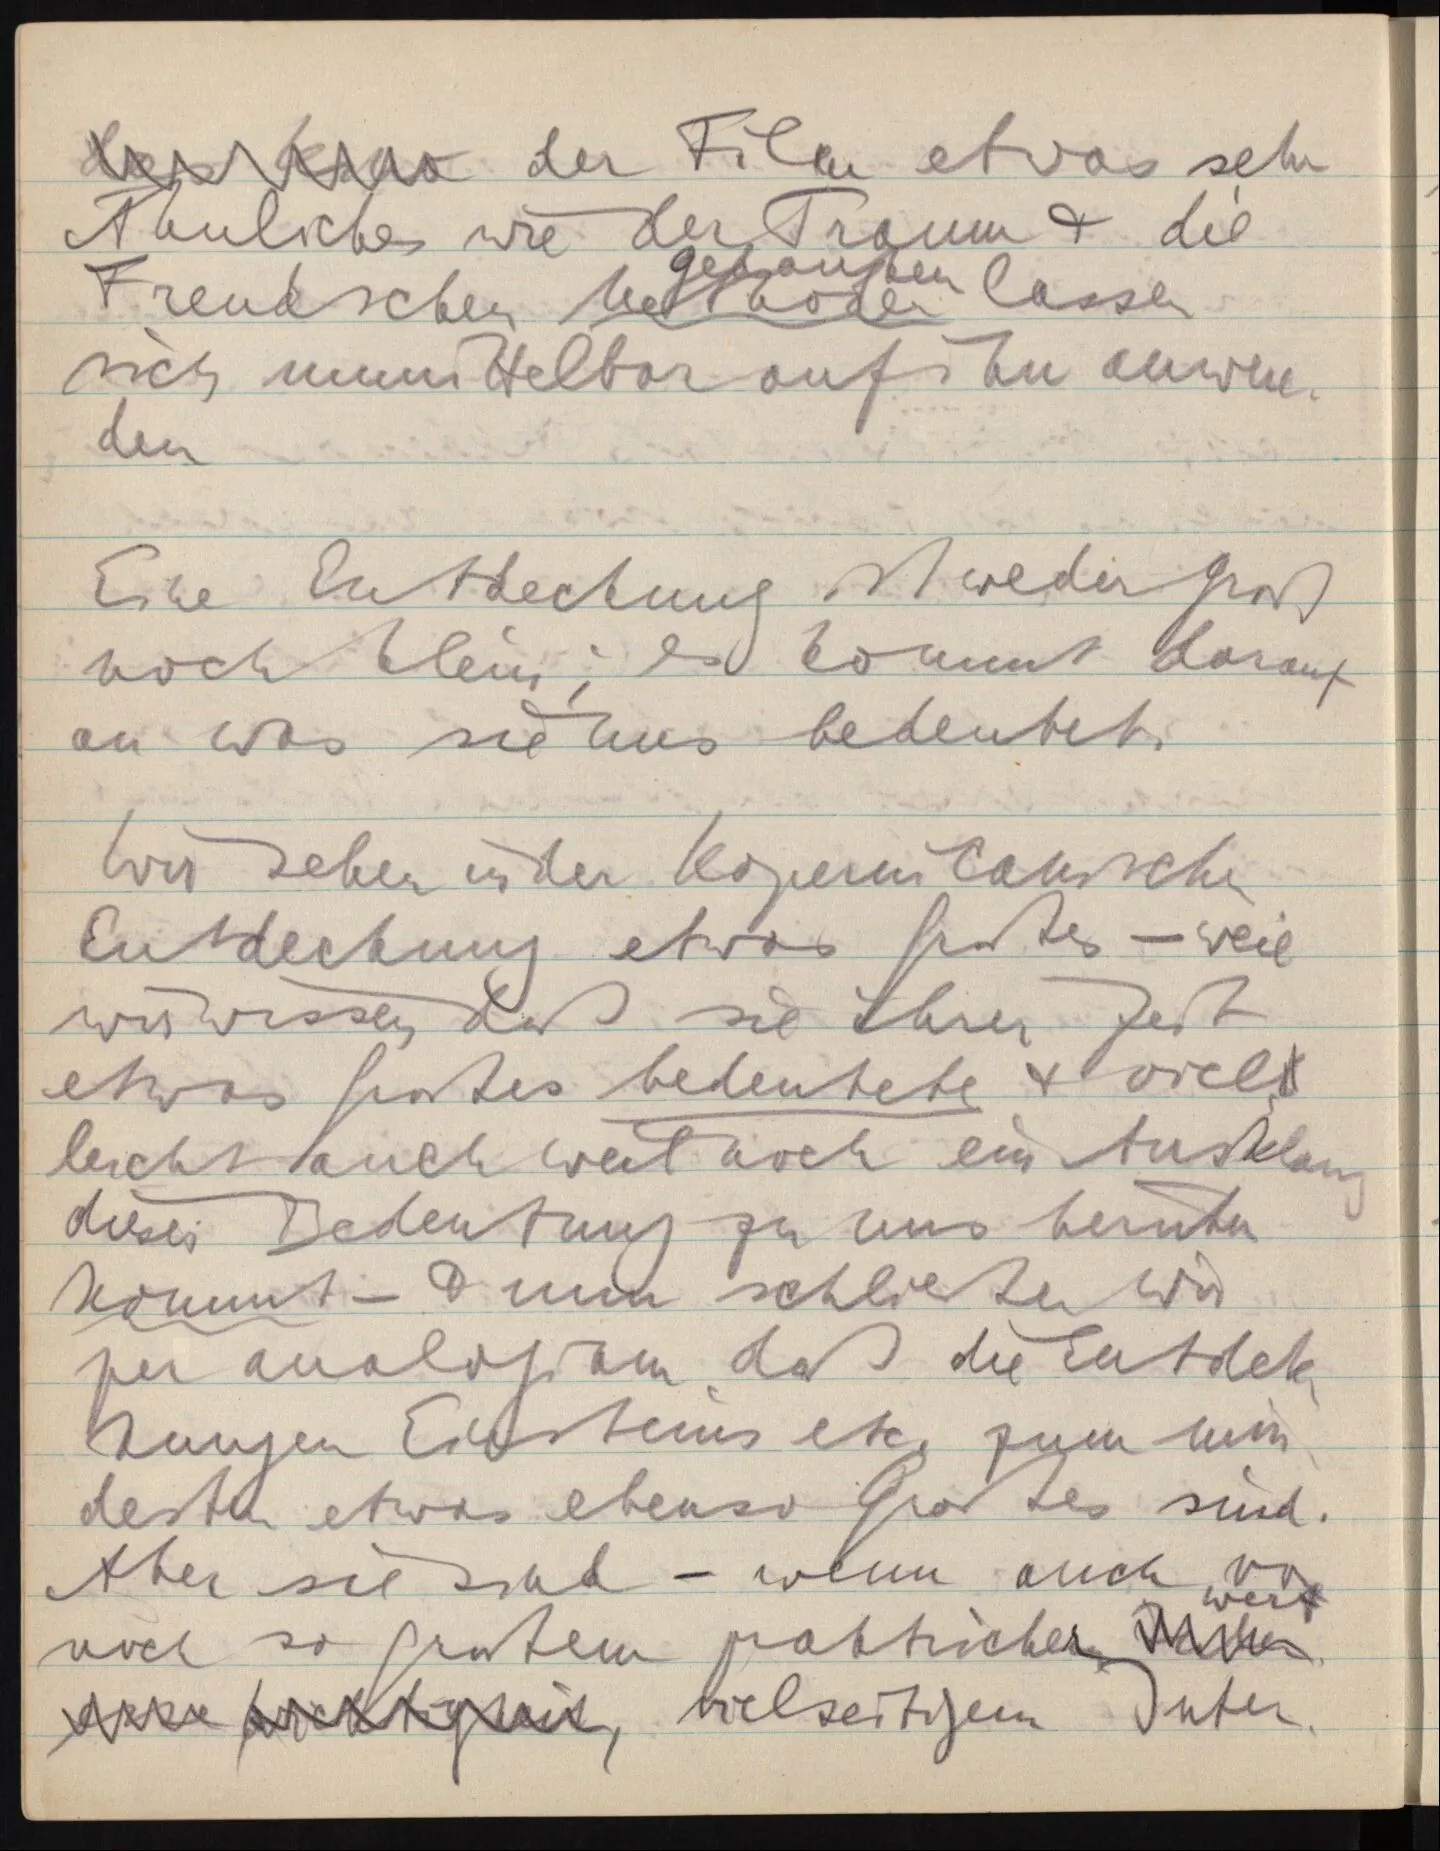 der Film etwas sehr
Ähnliches wie der Traum & die
gedanken
Freudschen Methoden lassen
sich unmittelbar auf ihn anwen-
den
Eine Entdeckung ist weder groß
noch klein; es kommt darauf
an was sie uns bedeutet.
Wir sehen in der Kopernikanischen
Entdeckung etwas Großes – weil
wir wissen daß sie ihrer Zeit
etwas Großes bedeutete & viel-
leicht auch weil noch ein Ausklang
dieser Bedeutung zu uns herüber
kommt – & nun schließen wir
per analogiam daß die Entdek-
kungen Einsteins etc. zum min-
desten etwas ebenso Großes sind.
Aber sie sind – wenn auch von
wert
noch so großem praktischen
, vielseitigem Inter-